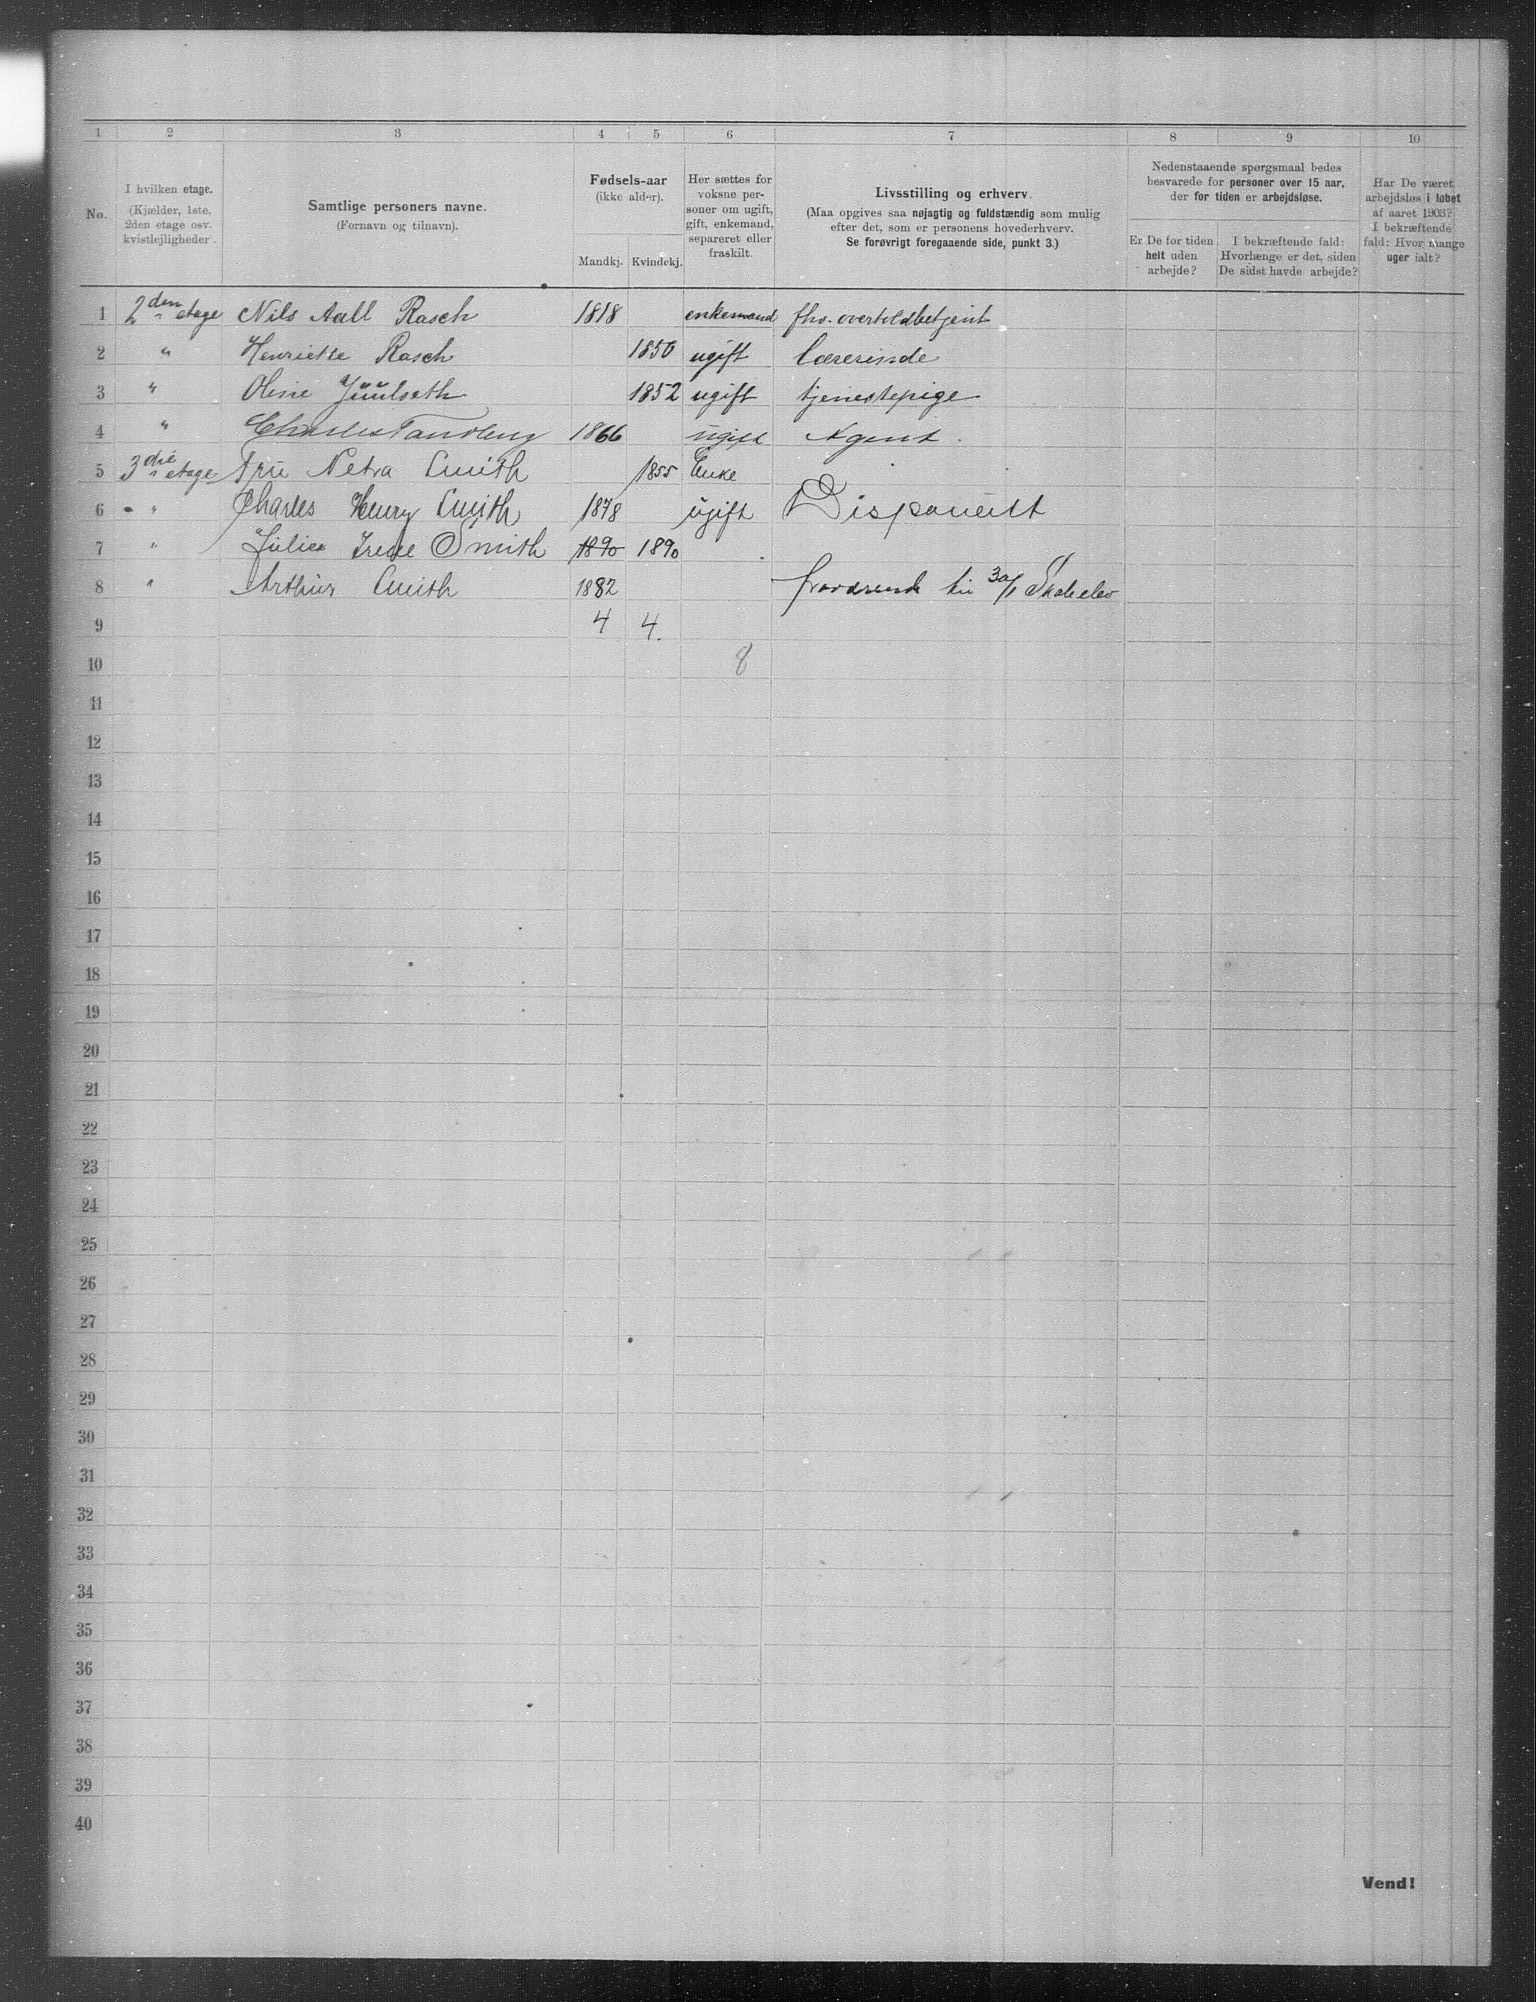 1 2 3 4 5 6 7 8 9 10
No.
I hvilken etage.
(Kjælder, 1ste,
2den etage osv.
kvistlejligheder.
Samtlige personers navne.
(Fornavn og tilnavn).
Fødsels-aar
(ikke alder).
Mandkj. Kvindekj.
Her sættes for
voksne per-
soner om ugift,
gift, enkemand,
separeret eller
fraskilt.
Livsstilling og erhverv.
(Maa opgives saa nøjagtig og fuldstændig som mulig
efter det, som er personens hovederhverv.
Se forøvrigt foregaaende side, punkt 3.)
Nedenstaaende spørgsmaal bedes
besvarede for personer over 15 aar,
der for tiden er arbejdsløse.
Er De for tiden
helt uden
arbejde?
I bekræftende fald:
Hvorlænge er det, siden
De sidst havde arbejde?
Har De været
arbejdsløs i løbet
af aaret 1903?
I bekræftende
fald: Hvor mange
uger ialt?
1 2den etage Nils Aall Rasch 1818 enkemand fhv. overtoldbetjent
2 " Henriette Rasch 1850 ugift lærerinde
3 " Oline Juulseth 1852 ugift tjenestepige
4 " Charles Tandberg 1866 ugift Agent.
5 3die etage Fru Smith 1855 Enke
6 " Charles Henry Smith 1878 ugift Disponent
7 " Julie Irene Smith 1890 1890
8 " Arthur Smith 1882 fraværende
9 4 4.
10 8
11
12
13
14
15
16
17
18
19
20
21
22
23
24
25
26
27
28
29
30
31
32
33
34
35
36
37
38
39
40
Vend!